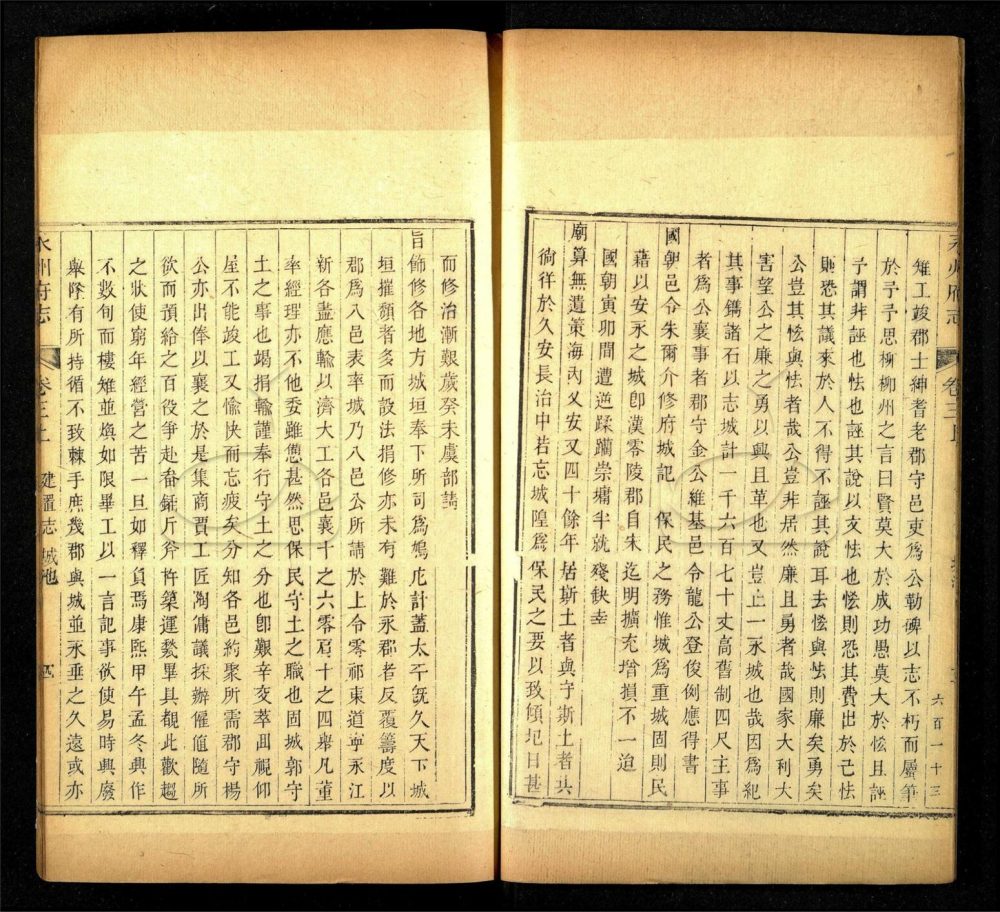 永州府志 卷三上
六百一十三
雉工竣郡士紳耆老郡守邑吏爲公勒碑以志不朽而屬筆
於予予思柳柳州之言曰賢莫大於成功愚莫大於恡且誣
予謂非誣也怯也誣其說以文怯也恡則恐其費出於己怯
則恐其議來於人不得不誣其說耳去恡與怯則廉矣勇矣
公豈其恡與怯者哉公豈非居然廉且勇者哉國家大利大
害望公之廉之勇以興且革也又豈止一永城也哉因爲紀
其事鐫諸石以志城計一千六百七十丈高舊制四尺主事
者爲公襄事者郡守金公維基邑令龍公登俊例應得書
國朝邑令朱爾介修府城記 保民之務惟城爲重城固則民
藉以安永之城卽漢零陵郡自宋迄明擴充增損不一迨
國朝寅卯間遭逆蹂躪崇墉半就殘缺幸
廟算無遺策海內乂安又四十餘年居斯土者與守斯土者共
徜徉於久安長治中若忘城隍爲保民之要以致傾圮日甚
而修治漸艱歲癸未虞部請
旨飭修各地方城垣奉下所司爲鳩庀計蓋太平旣久天下城
垣摧頹者多而設法捐修亦未有難於永郡者反覆籌度以
郡爲八邑表率城乃八邑公所請於上令零祁東道寧永江
新各盡應輸以濟大工各邑襄十之六零肩十之四舉凡董
率經理亦不他委雖憊甚然思保民守土之職也固城郭守
土之事也竭捐輸謹奉行守土之分也卽艱辛交萃囬視仰
屋不能竣工又愉快而忘疲矣分知各邑約聚所需郡守楊
公亦出俸以襄之於是集商賈工匠淘傭議採辦僱値隨所
欲而預給之百役爭赴畚鍤斤斧杵築運甃畢具覩此歡趨
之狀使窮年經營之苦一旦如釋負焉康熙甲午孟冬興作
不數旬而樓雉並煥如限畢工以一言記事欲使易時興廢
舉墜有所持循不致棘手庶幾郡與城並永垂之久遠或亦
永州府志 卷三上 建置志 城池